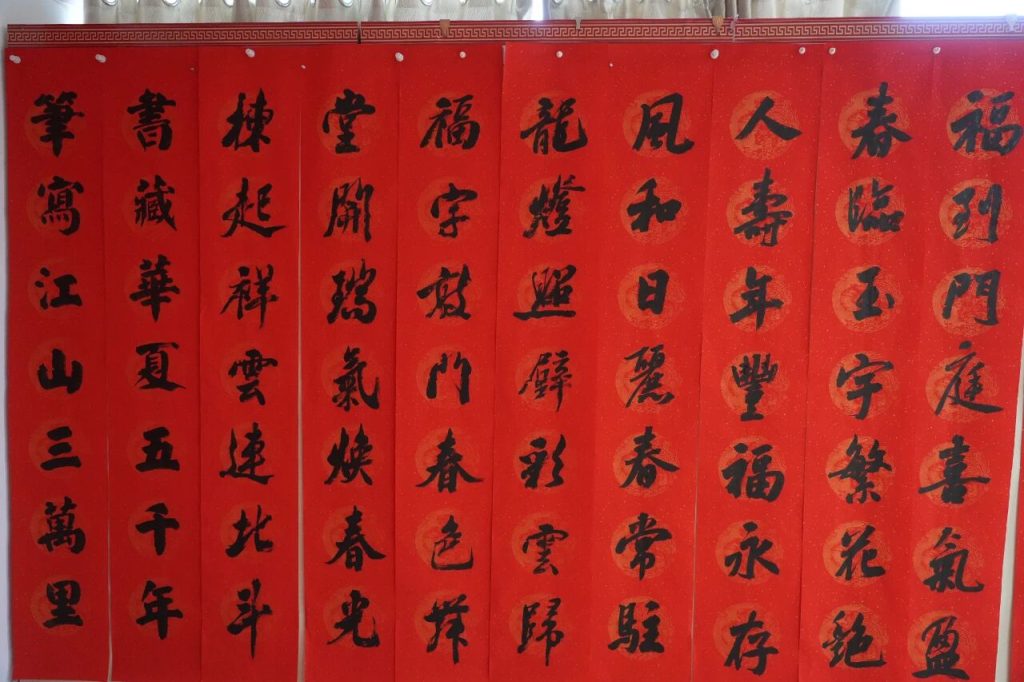 福到門庭喜氣盈
春臨玉宇繁花艷
人壽年豐福永存
風和日麗春常駐
龍燈照壁彩雲歸
福字敲門春色舞
堂開瑞氣煥春光
棟起祥雲連北斗
書藏華夏五千年
筆寫江山三萬里